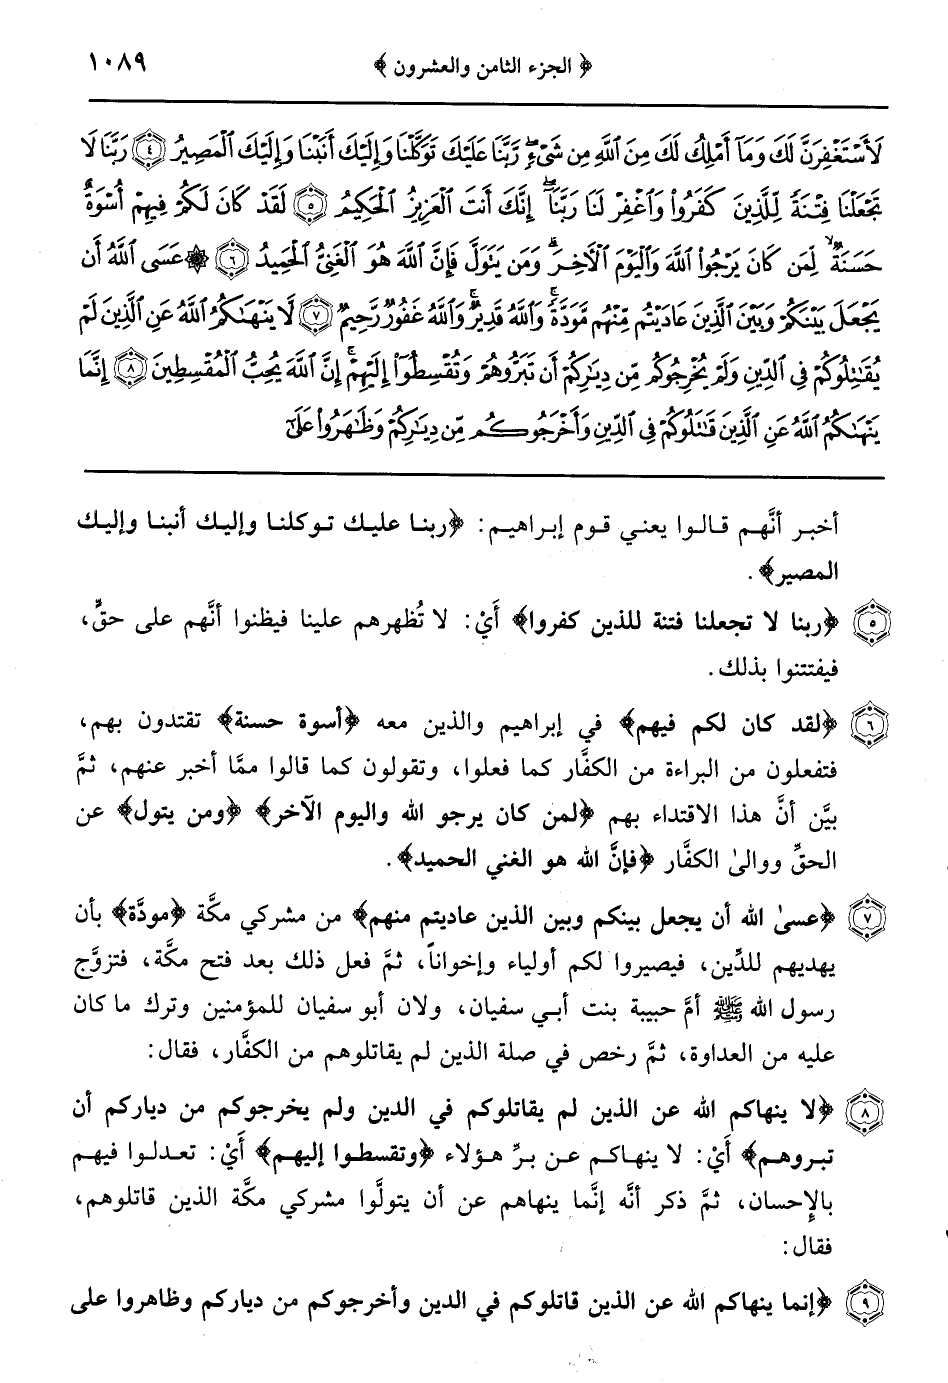 ﴿ الجزء الثامن والعشرون ﴾ ١٠٨٩
لَأَسْتَغْفِرَنَّ لَكَ وَمَآ أَمْلِكُ لَكَ مِنَ ٱللَّهِ مِن شَىْءٍۖ رَّبَّنَا عَلَيْكَ تَوَكَّلْنَا وَإِلَيْكَ أَنَبْنَا وَإِلَيْكَ ٱلْمَصِيرُ ٤ رَبَّنَا لَا
تَجْعَلْنَا فِتْنَةً لِّلَّذِينَ كَفَرُوا۟ وَٱغْفِرْ لَنَا رَبَّنَآۖ إِنَّكَ أَنتَ ٱلْعَزِيزُ ٱلْحَكِيمُ ٥ لَقَدْ كَانَ لَكُمْ فِيهِمْ أُسْوَةٌ
حَسَنَةٌ لِّمَن كَانَ يَرْجُوا۟ ٱللَّهَ وَٱلْيَوْمَ ٱلْـَٔاخِرَۚ وَمَن يَتَوَلَّ فَإِنَّ ٱللَّهَ هُوَ ٱلْغَنِىُّ ٱلْحَمِيدُ ٦ ۞ عَسَى ٱللَّهُ أَن
يَجْعَلَ بَيْنَكُمْ وَبَيْنَ ٱلَّذِينَ عَادَيْتُم مِّنْهُم مَّوَدَّةًۚ وَٱللَّهُ قَدِيرٌۚ وَٱللَّهُ غَفُورٌ رَّحِيمٌ ٧ لَّا يَنْهَىٰكُمُ ٱللَّهُ عَنِ ٱلَّذِينَ لَمْ
يُقَـٰتِلُوكُمْ فِى ٱلدِّينِ وَلَمْ يُخْرِجُوكُم مِّن دِيَـٰرِكُمْ أَن تَبَرُّوهُمْ وَتُقْسِطُوٓا۟ إِلَيْهِمْۚ إِنَّ ٱللَّهَ يُحِبُّ ٱلْمُقْسِطِينَ ٨ إِنَّمَا
يَنْهَىٰكُمُ ٱللَّهُ عَنِ ٱلَّذِينَ قَـٰتَلُوكُمْ فِى ٱلدِّينِ وَأَخْرَجُوكُم مِّن دِيَـٰرِكُمْ وَظَـٰهَرُوا۟ عَلَىٰٓ
أخبر أنَّهم قالوا يعني قوم إبراهيم: ﴿ربنا عليك توكلنا وإليك أنبنا وإليك
المصير﴾.
٥ ﴿ربنا لا تجعلنا فتنة للذين كفروا﴾ أَيْ: لا تُظهرهم علينا فيظنوا أنَّهم على حقٍّ،
فيفتتنوا بذلك.
٦ ﴿لقد كان لكم فيهم﴾ في إبراهيم والذين معه ﴿أسوة حسنة﴾ تقتدون بهم،
فتفعلون من البراءة من الكفَّار كما فعلوا، وتقولون كما قالوا ممَّا أخبر عنهم، ثمَّ
بيَّن أنَّ هذا الاقتداء بهم ﴿لمن كان يرجو الله واليوم الآخر﴾ ﴿ومن يتول﴾ عن
الحقِّ ووالىٰ الكفَّار ﴿فإنَّ الله هو الغني الحميد﴾.
٧ ﴿عسىٰ الله أن يجعل بينكم وبين الذين عاديتم منهم﴾ من مشركي مكَّة ﴿مودَّة﴾ بأن
يهديهم للدِّين، فيصيروا لكم أولياء وإخواناً، ثمَّ فعل ذلك بعد فتح مكَّة، فتزوَّج
رسول الله ﷺ أمَّ حبيبة بنت أبي سفيان، ولان أبو سفيان للمؤمنين وترك ما كان
عليه من العداوة، ثمَّ رخص في صلة الذين لم يقاتلوهم من الكفَّار، فقال:
٨ ﴿لا ينهاكم الله عن الذين لم يقاتلوكم في الدين ولم يخرجوكم من دياركم أن
تبروهم﴾ أَيْ: لا ينهاكم عن برِّ هؤلاء ﴿وتقسطوا إليهم﴾ أَيْ: تعدلوا فيهم
بالإِحسان، ثمَّ ذكر أنَّه إنَّما ينهاهم عن أن يتولَّوا مشركي مكَّة الذين قاتلوهم،
فقال:
٩ ﴿إنما ينهاكم الله عن الذين قاتلوكم في الدين وأخرجوكم من دياركم وظاهروا على